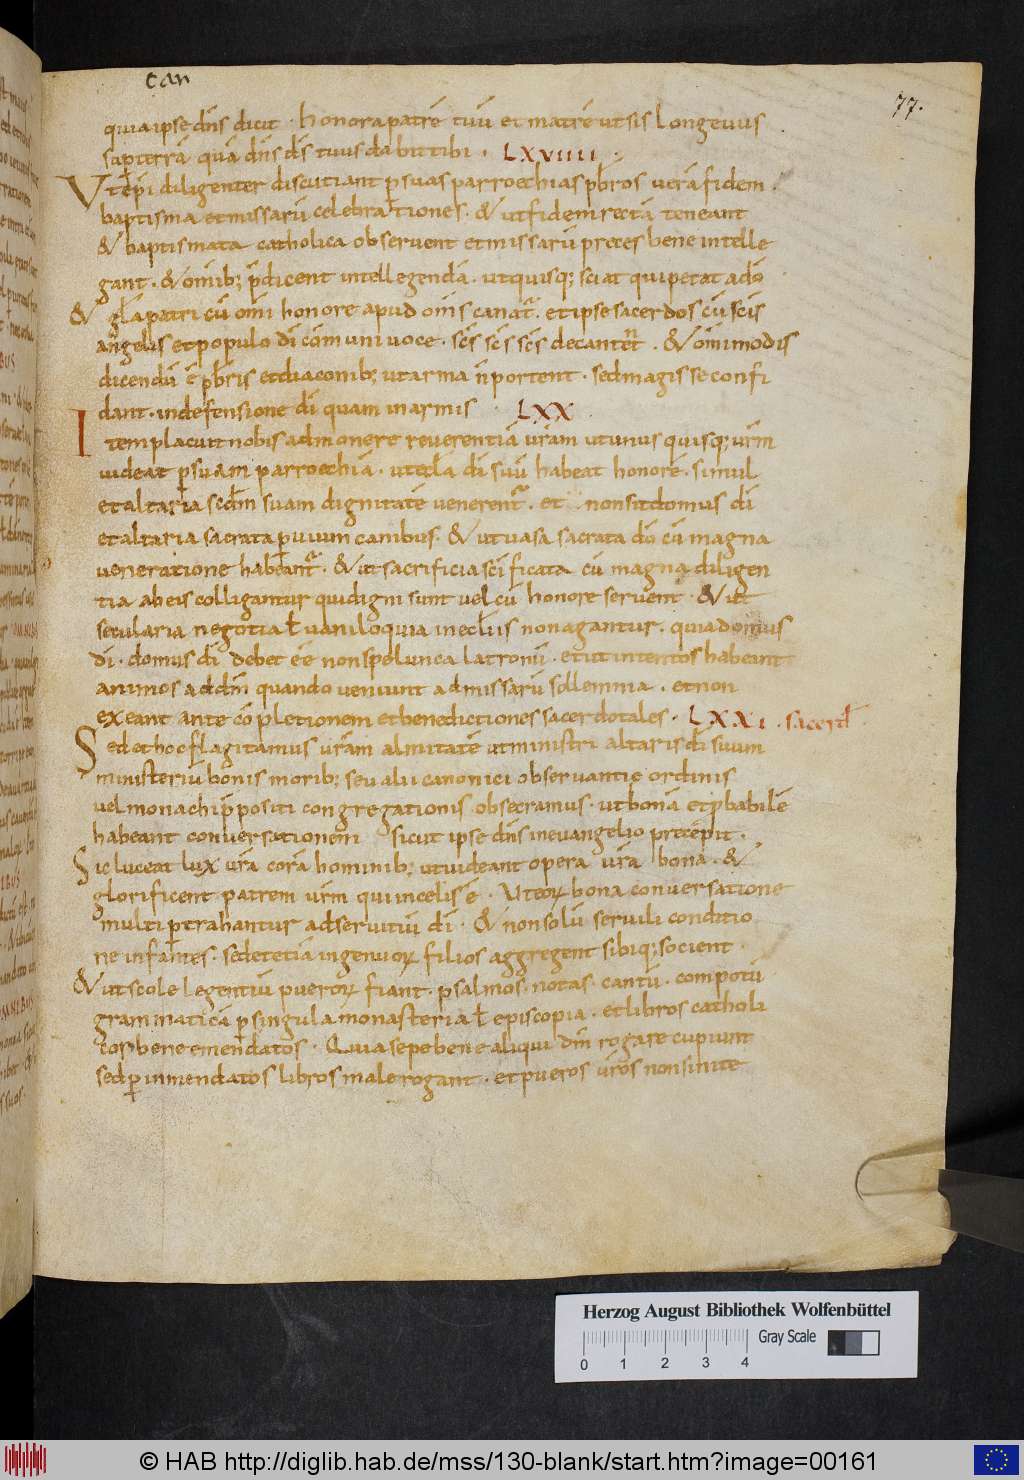 can
77.
quia ipse dns dicit · honora patrē tuū et matrē ut sis longevus
sup terrā quā dns ds tuus dabit tibi · LXVIIII ·
Ut epi diligenter discutiant p suas parroechias pbros vera fidem ·
baptisma et missarū celebrationes · & ut fidem rectā teneant
& baptismata catholica observent et missarū preces bene intelle
gant · & omib; pdicent intellegendā · ut quisq; sciat qui petat a dō
& glā patri cū omi honore apud omīs canat · et ipse sacerdos cū scis
angelis et populo di cōmuni voce · scs scs scs decantent · & omimodis
dicendū ē pbris et diaconib; ut arma n portent · sed magis se confi
dant · in defensione di quam in armis LXX
Item placuit nobis admonere reverentiā vram ut unus quisq; vrm
videat p suam parroechiā · ut ecla di suū habeat honorē · simul
et altaria scdm suam dignitatē venerent · et non sit domus di
et altaria sacrata pvium canibus · & ut vasa sacrata dō cū magna
veneratione habeant · & ut sacrificia scificata cū magna diligen
tia ab eis colligantur qui digni sunt vel cū honore servent · & ut
secularia negotia ł vaniloquia in ecliis non agantur · quia domus
di · domus di debet ēe non spelunca latronū · et ut intentos habeant
animos ad dm quando veniunt ad missarū sollemnia · et non
exeant ante cōpletionem et benedictiones sacerdotales · LXXI · sacerd
Sed et hoc flagitamus vram almitatē ut ministri altaris di suum
ministeriū bonis morib; seu alii canonici observantię ordinis
vel monachi ppositi congregationis obsecramus · ut bonā et pbabilē
habeant conversationem sicut ipse dns in evangelio precepit ·
Sic luceat lux vra corā hominib; ut videant opera vra bona · &
glorificent patrem vrm qui in celis ē · Ut eorum bona conversatione
multi ptrahantur ad servitiū di · & non solū servili conditio
ne infantes · sed etiā ingenuorum filios aggregent sibiq; socient ·
& ut scole legentiū puerorum fiant · psalmos · notas · cantū · compotū
grammaticā p singula monasteria ł episcopia · et libros catholi
cos bene emendatos · Quia sepe bene aliqui dm rogare cupiunt
sed p inmendatos libros male rogant · et pueros vros non sinite
Herzog August Bibliothek Wolfenbüttel
Gray Scale
0 1 2 3 4
© HAB http://diglib.hab.de/mss/130-blank/start.htm?image=00161